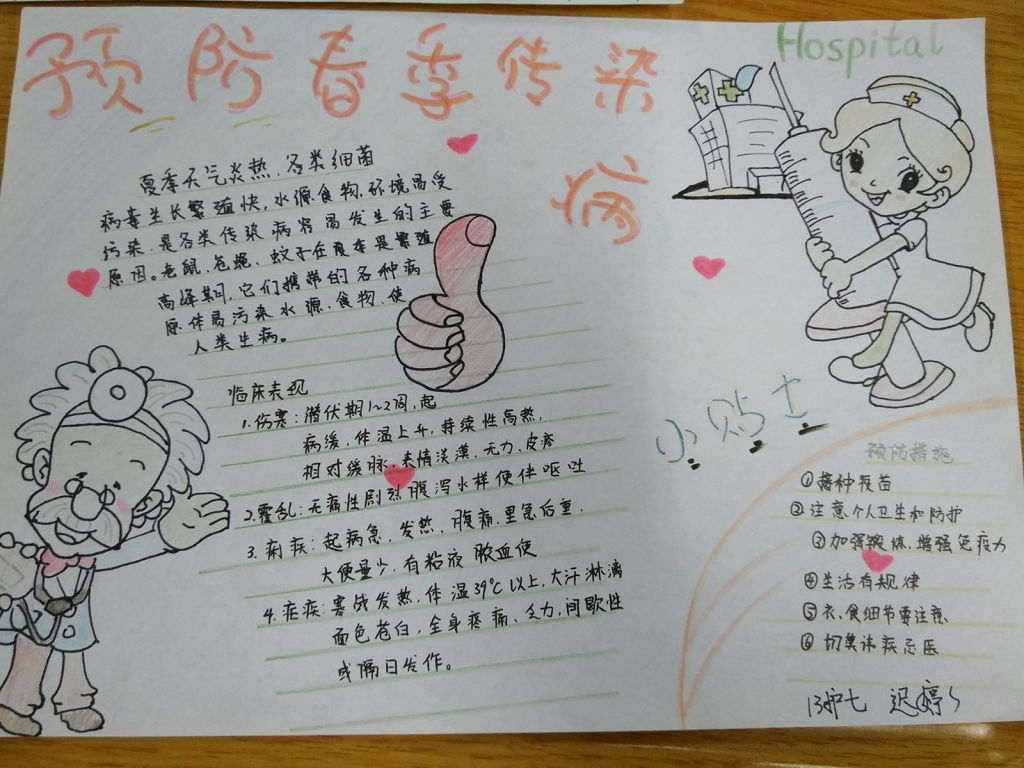 预防春季传染
病
Hospital
夏季天气炎热,各类细菌
病毒生长繁殖快,水源食物,环境易受
污染,是各类传染病容易发生的主要
原因。老鼠、苍蝇、蚊子在夏季是繁殖
高峰期间,它们携带的各种病
原体易污染水源、食物,使
人类生病。
临床表现
1.伤寒:潜伏期1~2周,起
病缓,体温上升,持续性高热,
相对缓脉,表情淡漠,无力、皮疹
2.霍乱:无痛性剧烈腹泻水样便伴呕吐
3.痢疾:起病急,发热,腹痛,里急后重,
大便量少,有粘液脓血便
4.疟疾:寒战发热,体温39℃以上,大汗淋漓
面色苍白,全身疼痛、乏力,间歇性
或隔日发作。
小贴士
预防措施
①接种疫苗
②注意个人卫生和防护
③加强锻炼,增强免疫力
④生活有规律
⑤衣、食细节要注意
⑥切莫讳疾忌医
13护七 迟婷